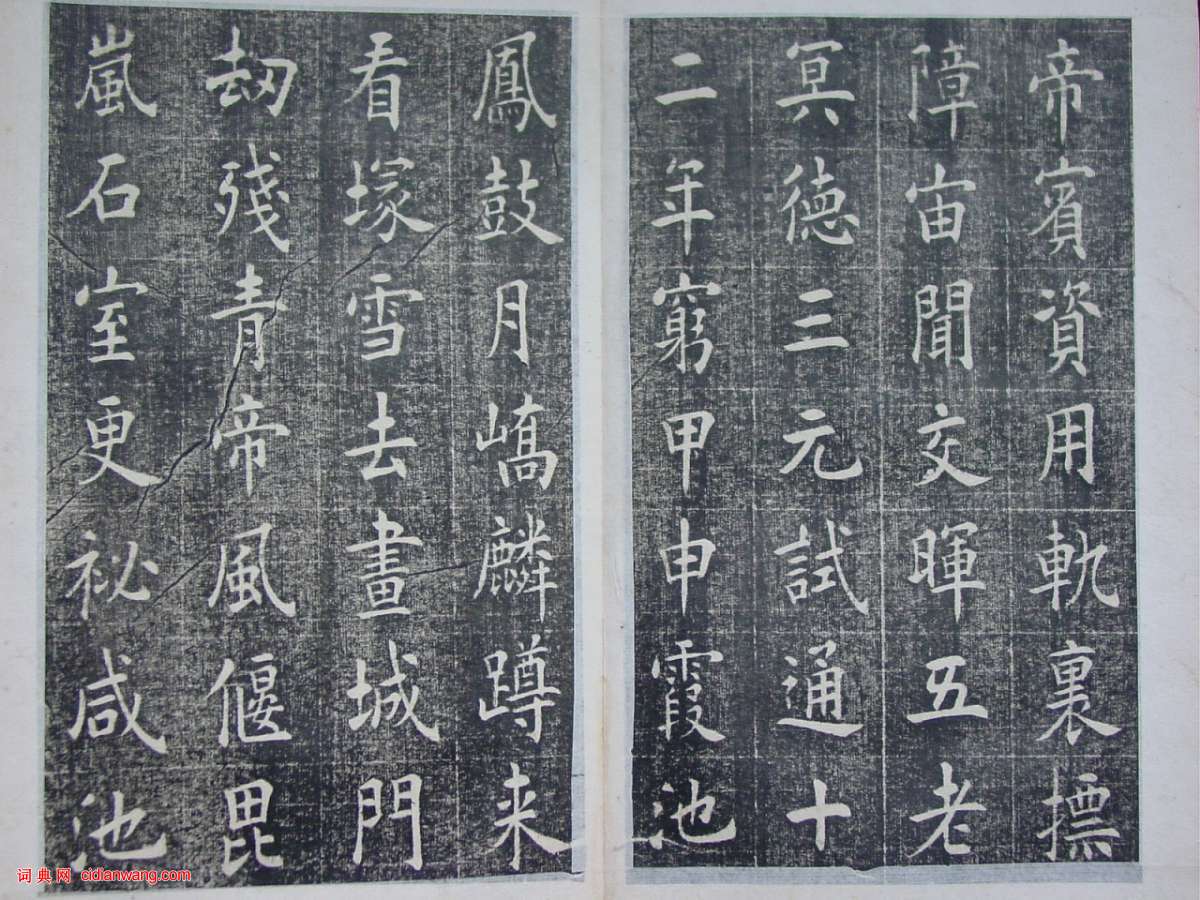 帝賓資用軌裏摽
障宙聞文暉五老
冥德三元試通十
二年窮甲申霞池
鳳鼓月嶠麟蹲来
看塚雪去畫城門
劫殘青帝風偃毘
嵐石室更祕咸池
词典网 cidianwang.com